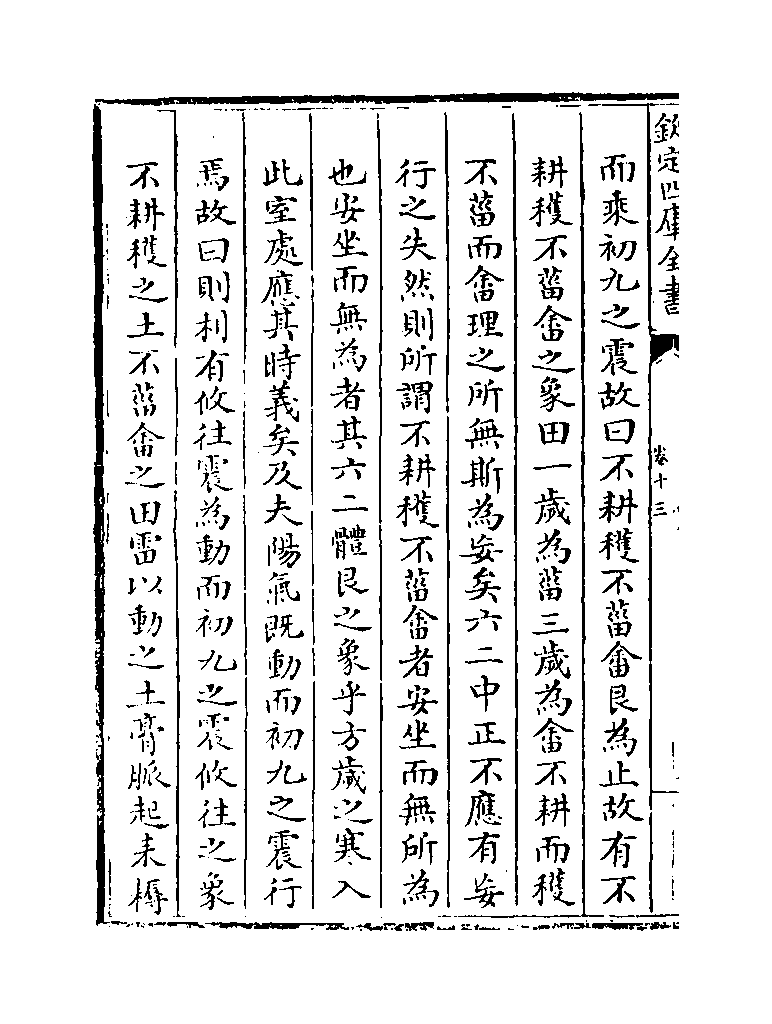 欽定四庫全書
卷十三
而乘初九之震故曰不耕穫不菑畬艮為止故有不
耕穫不菑畬之象田一歲為菑三歲為畬不耕而穫
不菑而畬理之所無斯為妄矣六二中正不應有妄
行之失然則所謂不耕穫不菑畬者安坐而無所為
也安坐而無為者其六二體艮之象乎方歲之寒入
此室處應其時義矣及夫陽氣既動而初九之震行
焉故曰則利有攸往震為動而初九之震攸往之象
不耕穫之土不菑畬之田雷以動之土膏脈起耒耨